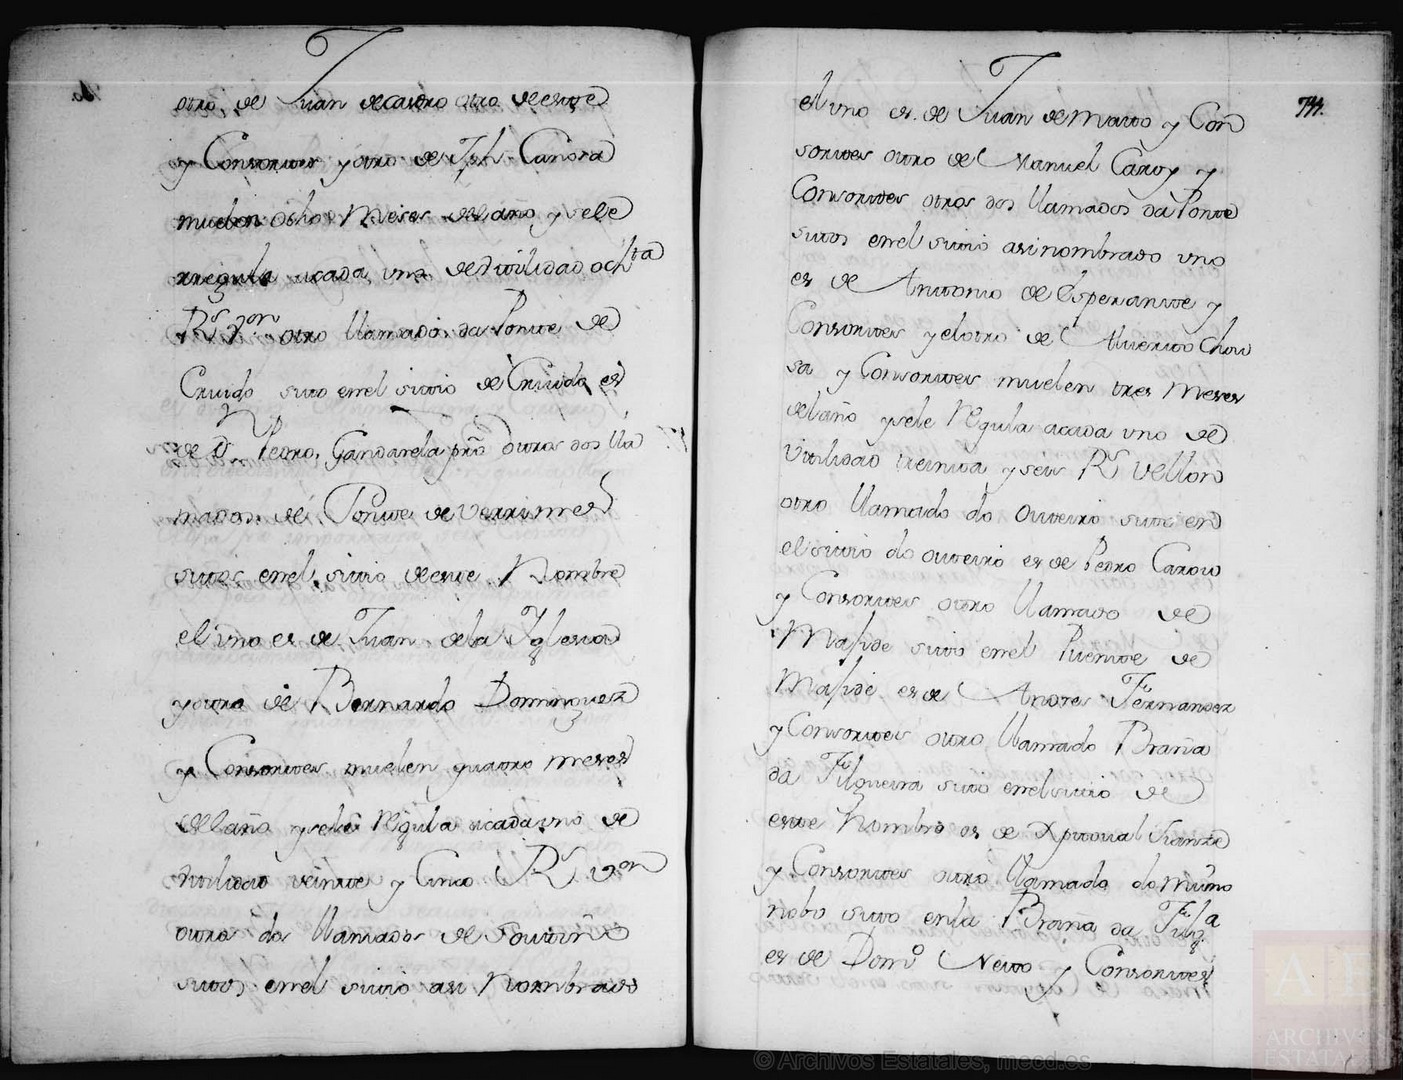 otro, de Juan de castro otro de este
y Consortes y otro de Jph. Canosa
muelen ocho Meses del año y sele
rregula acada uno de Utilidad ochta
Rs Von otro llamado da Ponte de
Cruido sito en el sitio de Cruido es
de Dn Pedro, Gandarela pro Outros dos lla
mados de Ponte de Verrismes
sitos en el sitio de este Nombre
el Uno es de Juan dela Yglesia
y outro de Bernardo Dominguez
y Consortes muelen quatro meses
del año y sele Rêgula acada uno de
Utilidad veinte y Cinco Rs Von
outro dos llamados de
sitos en el sitio asi Nombrado
el Uno es de Juan de Mato y Con
sortes outro de Manuel Caroy y
Consortes otros dos llamados da Ponte
sitos en el sitio asi nombrado uno
es de Antonio de Esperante y
Consortes y el otro de Alverto Chou
sa y Consortes muelen tres Meses
del año y sele Rêgula acada uno de
Utilidad treinta y seis Rs Vellon
otro llamado do Outeiro sito en
el sitio do outeiro es de Pedro Caroio
y Consortes outro llamado de
Malfide sito en el Puente de
Malfide es de Andres Fernandez
y Consortes outro llamado Braña
da Filgueira sito en el sitio de
este Nombre es de Xptoval Fianza
y Consortes outro llamado do Muino
nobo sito en la Braña da Filga
es de Domo Neito y Consortes
744.
© Archivos Estatales, mecd.es
AE
ARCHIVOS
ESTATALES